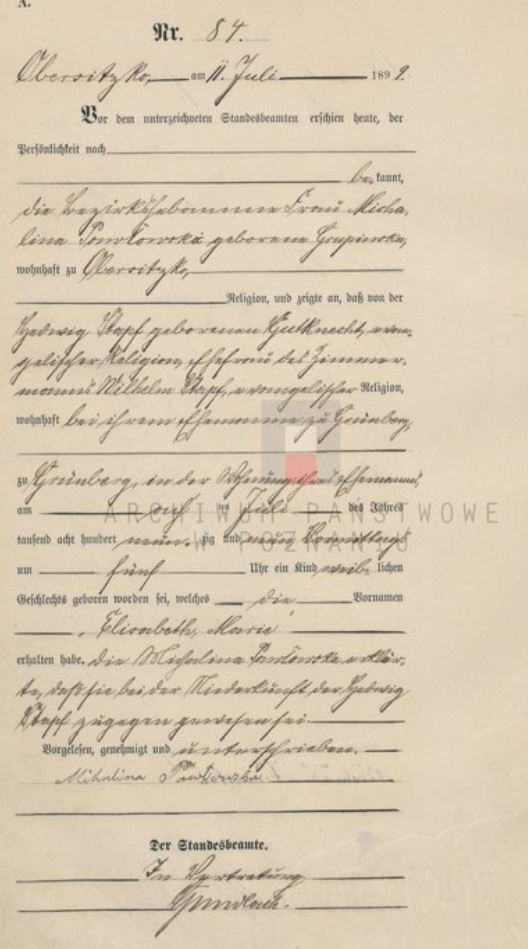 A.
Nr. 84.
Obersitzko, am 11. Juli 1899.
Vor dem unterzeichneten Standesbeamten erschien heute, der
Persönlichkeit nach
bekannt,
die Bezirkshebamme Frau Micha-
lina Pawlowska geborene Grupinska,
wohnhaft zu Obersitzko,
Religion, und zeigte an, daß von der
Hedwig Stapf geborenen Gutknecht, evan-
gelischer Religion, Ehefrau des Zimmer-
manns Wilhelm Stapf, evangelischer Religion,
wohnhaft bei ihrem Ehemanne zu Grünberg,
zu Grünberg, in der Wohnung ihres Ehemannes,
am acht ten Juli des Jahres
tausend acht hundert neun zig und neun Vormittags
um fünf Uhr ein Kind weib lichen
Geschlechts geboren worden sei, welches die Vornamen
Elisabeth, Marie
erhalten habe. Die Michalina Pawlowska erklär-
te, daß sie bei der Niederkunft der Hedwig
Stapf zugegen gewesen sei
Vorgelesen, genehmigt und unterschrieben.
Mihalina Pawlowska
Der Standesbeamte.
In Vertretung
Gundlach.
ARCHIWUM PAŃSTWOWE
W POZNANIU